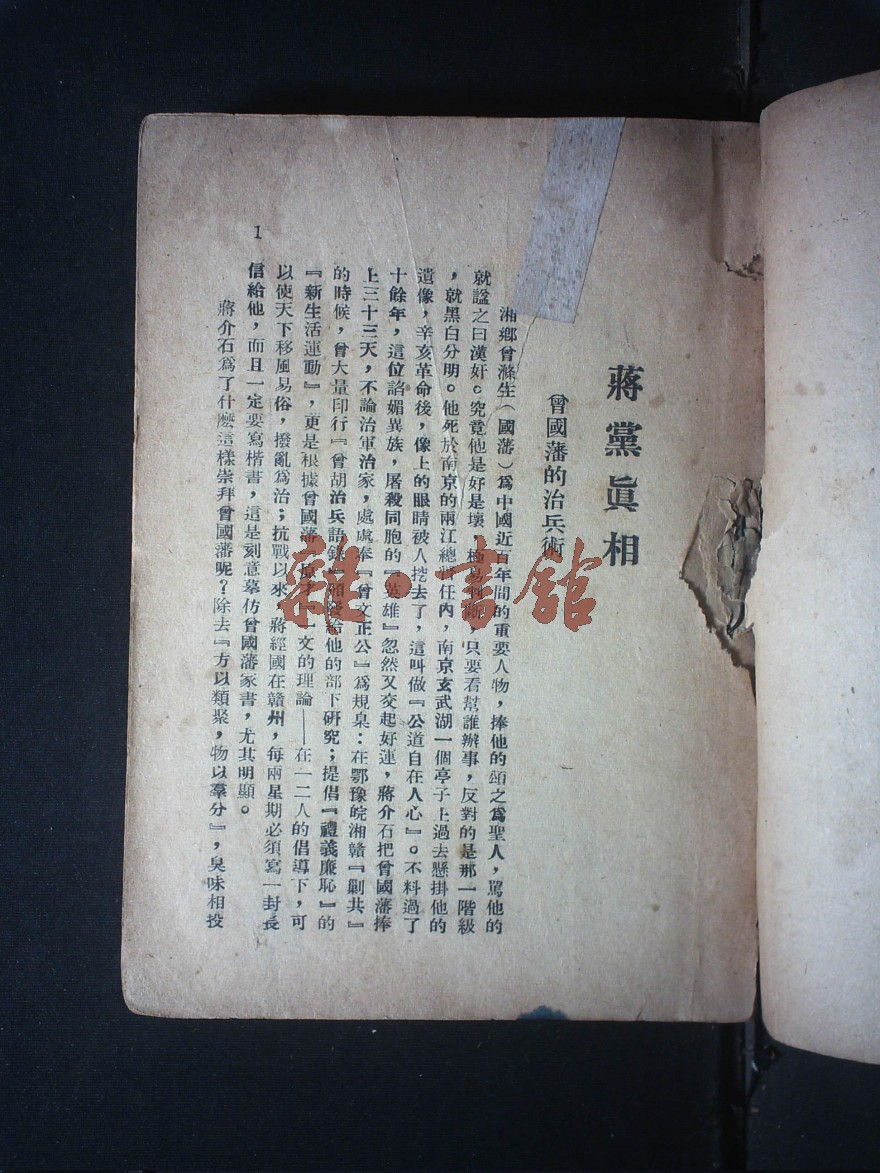 蔣黨眞相
曾國藩的治兵術
湘鄉曾滌生（國藩）爲中國近百年間的重要人物，捧他的頌之爲聖人，罵他的
就諡之曰漢奸。究竟他是好是壞，極易判斷，只要看幫誰辦事，反對的是那一階級
，就黑白分明。他死於南京的兩江總督任內，南京玄武湖一個亭子上過去懸掛他的
遺像，辛亥革命後，像上的眼睛被人挖去了，這叫做『公道自在人心』。不料過了
十餘年，這位諂媚異族，屠殺同胞的『英雄』忽然又交起好運，蔣介石把曾國藩捧
上三十三天，不論治軍治家，處處奉『曾文正公』爲規臬：在鄂豫皖湘贛『剿共』
的時候，曾大量印行『曾胡治兵語錄』頒發給他的部下硏究；提倡『禮義廉恥』的
『新生活運動』，更是根據曾國藩『原才』一文的理論——在一二人的倡導下，可
以使天下移風易俗，撥亂爲治；抗戰以來，蔣經國在贛州，每兩星期必須寫一封長
信給他，而且一定要寫楷書，這是刻意摹仿曾國藩家書，尤其明顯。
蔣介石爲了什麽這樣崇拜曾國藩呢？除去『方以類聚，物以羣分』，臭味相投
1
雜·書館